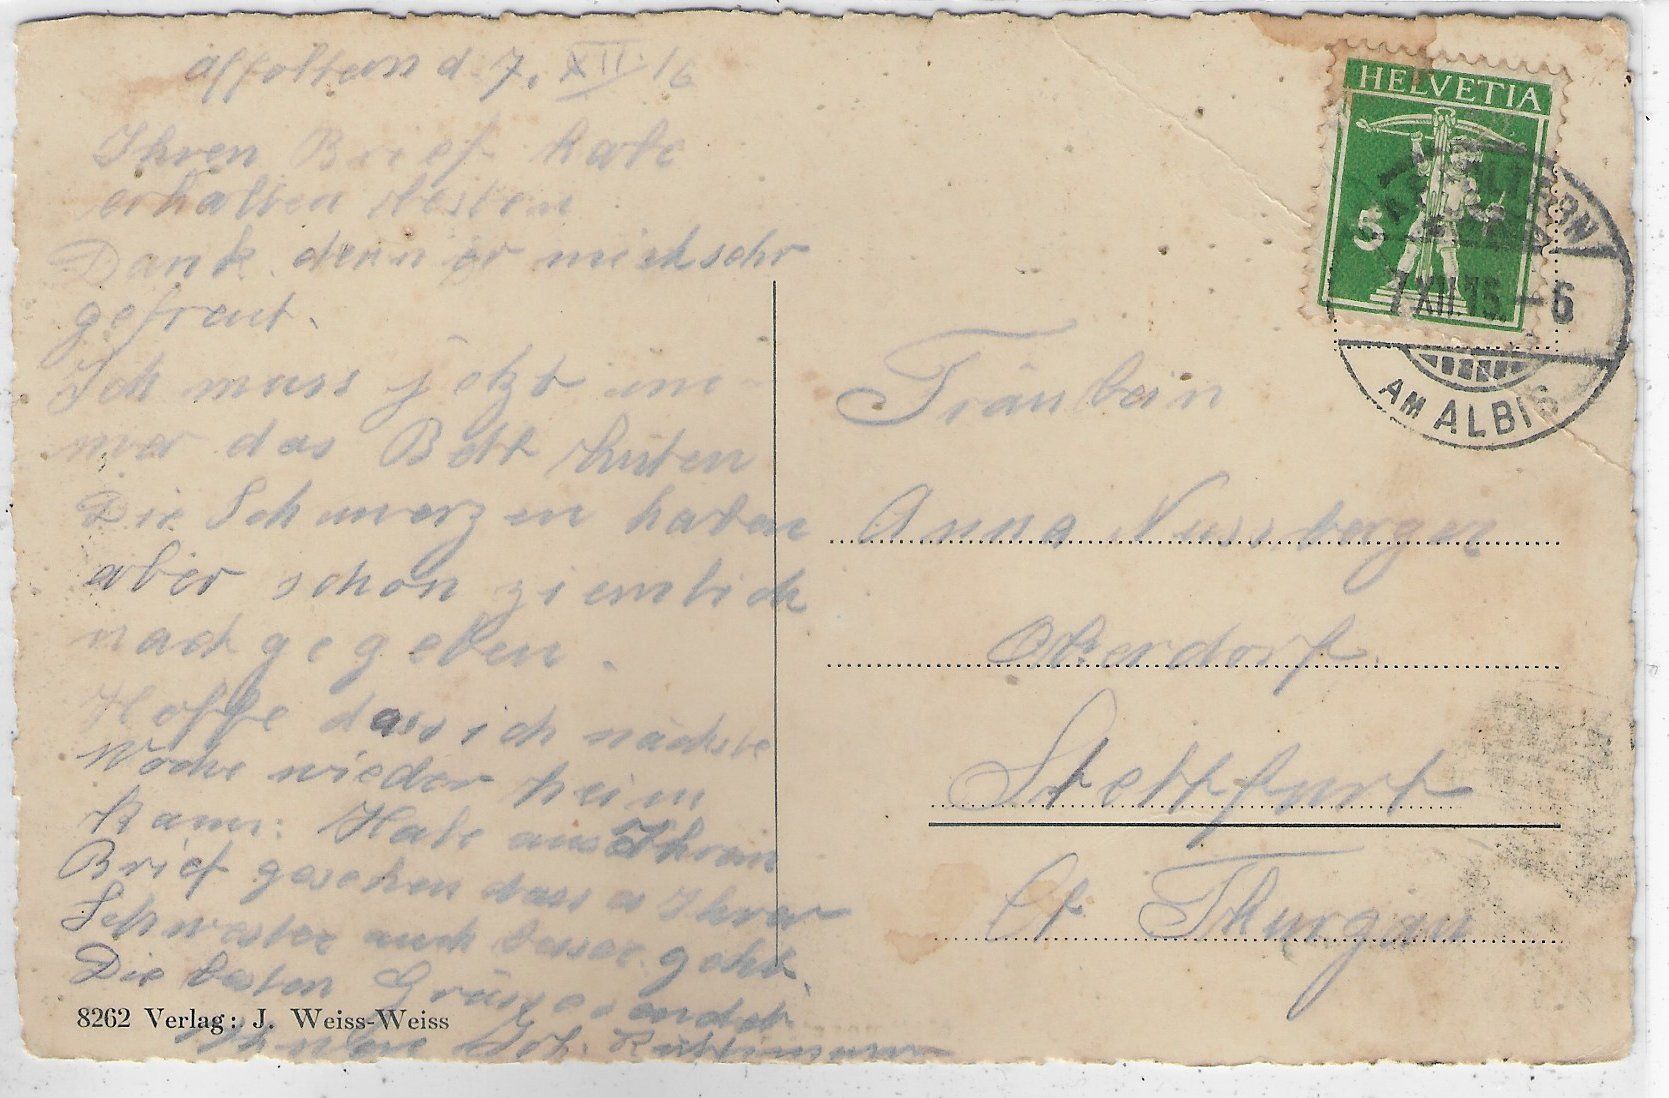 Affoltern d. 7. XII. 16
Ihren Brief habe
erhalten besten
Dank. denn er mich sehr
gefreut.
Ich muss jetzt im-
mer das Bett hüten
Die Schmerzen haben
aber schon ziemlich
nachgegeben.
Hoffe dass ich nächste
Woche wieder heim
kann: Habe aus Ihrem
Brief gesehen dass es Ihrer
Schwester auch besser geht.
Die besten Grüsse sendet
8262 Verlag: J. Weiss-Weiss
HELVETIA
5
AFFOLTERN
7 XII 15. - 6
AM ALBIS
Fräulein
Anna Nussberger
Oberdorf
Stettfurt
Ct Thurgau